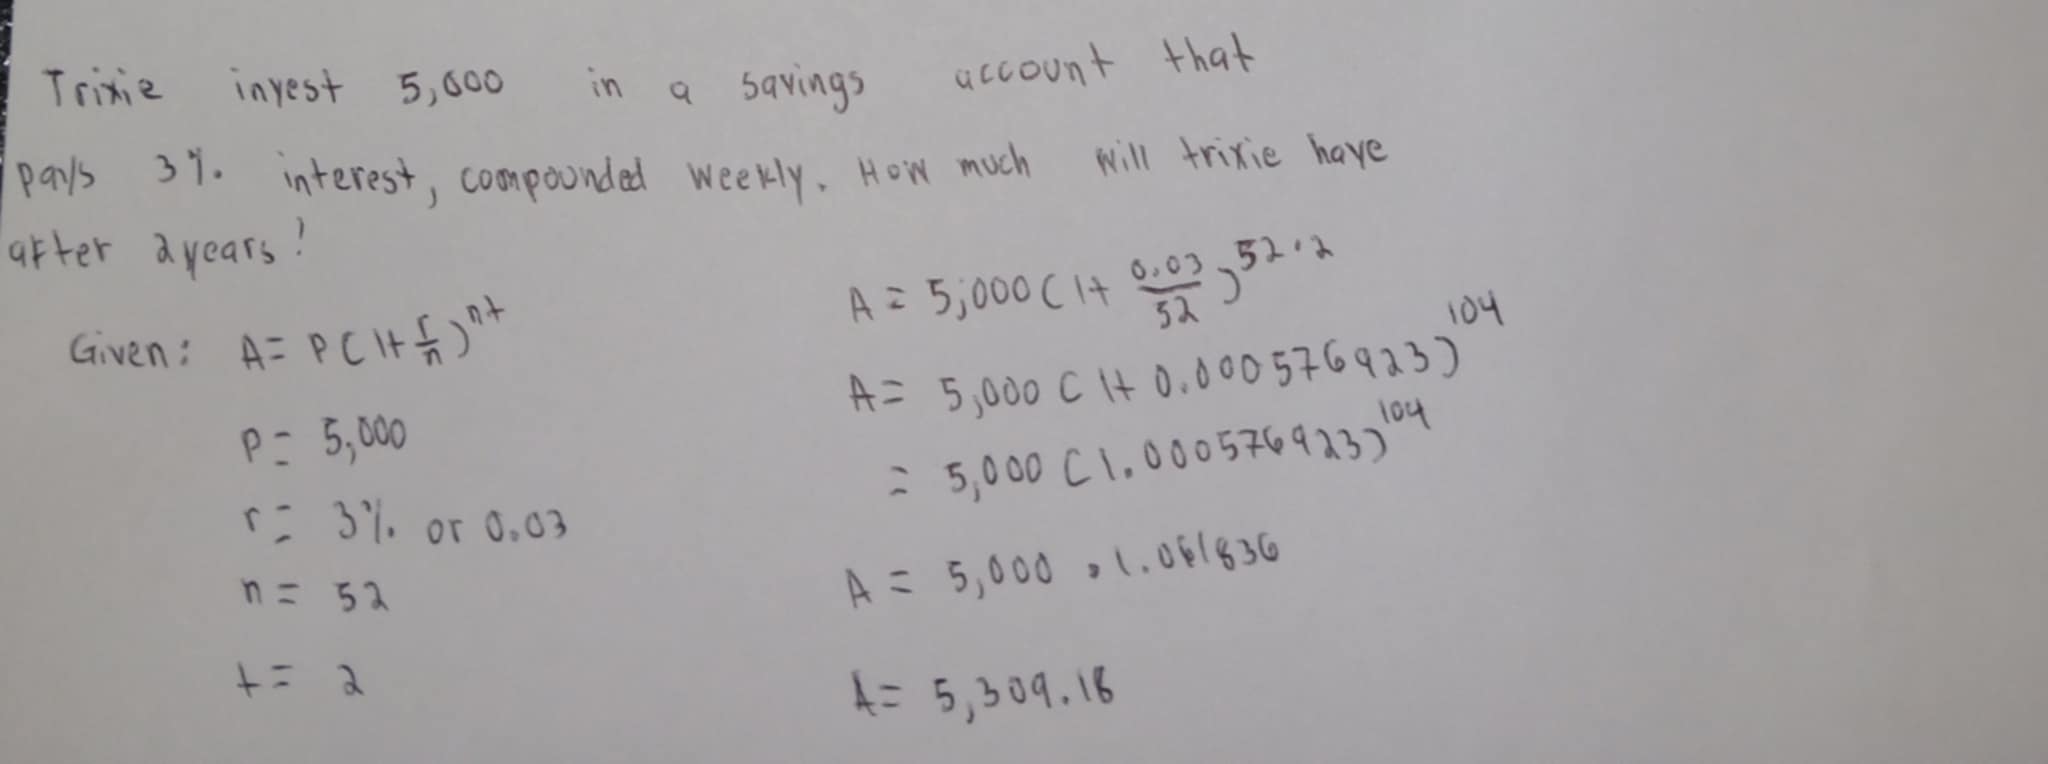 Trixie invest 5,000 in a savings account that
pays 3% interest, compounded weekly. How much will trixie have
after 2 years?
Given: A = P(1+r/n)^nt
P = 5,000
r = 3% or 0.03
n = 52
t = 2
A = 5,000(1+0.03/52)^52·2
A = 5,000(1+0.000576923)^104
= 5,000(1.000576923)^104
A = 5,000 · 1.061836
A = 5,309.18